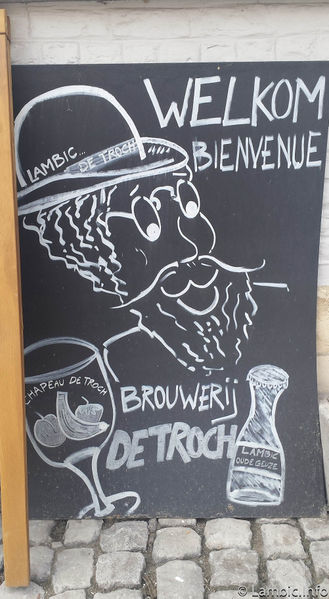 WELKOM
BIENVENUE
LAMBIC... DE TROCH
CHAPEAU DE TROCH
BROUWERIJ
DE TROCH
LAMBIC
OUDE GEUZE
© Lambic.Info